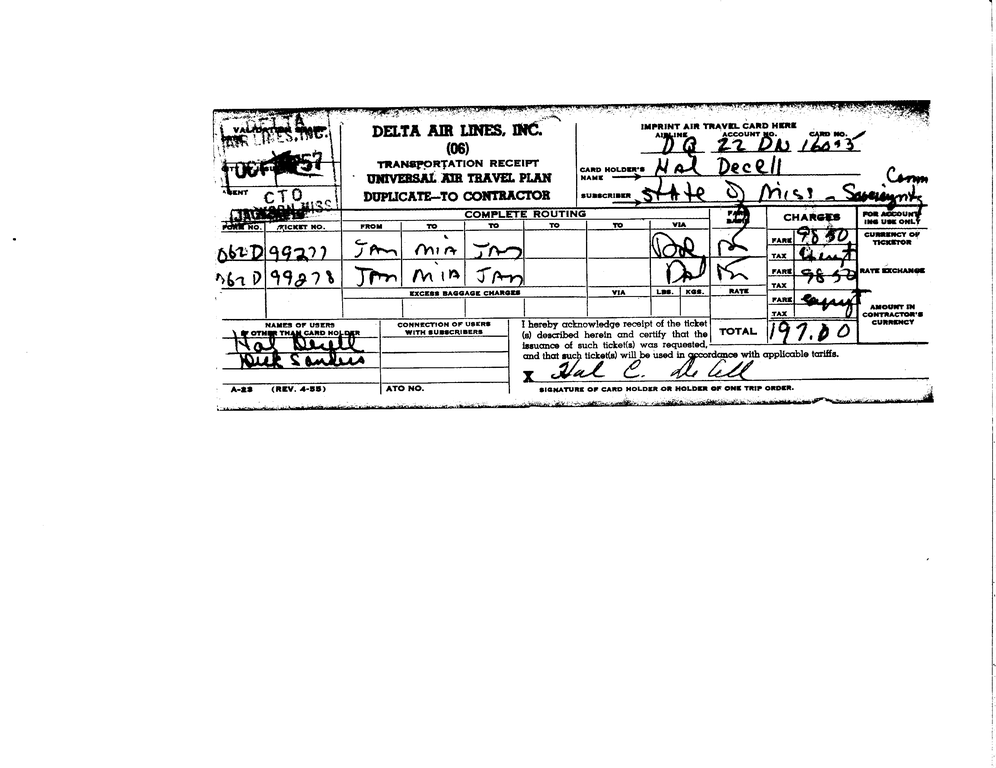 VALIDATION
DELTA
AIR LINES, INC.
OCT 57
AGENT
CTO
JACKSON MISS
DELTA AIR LINES, INC.
(06)
TRANSPORTATION RECEIPT
UNIVERSAL AIR TRAVEL PLAN
DUPLICATE—TO CONTRACTOR
IMPRINT AIR TRAVEL CARD HERE
AIRLINE ACCOUNT NO. CARD NO.
22 DN 16095
CARD HOLDER'S NAME Hal Decell
SUBSCRIBER State of Miss - Sovereignty Comm
COMPLETE ROUTING
FARE BASIS
CHARGES
FOR ACCOUNTING USE ONLY
FORM NO. TICKET NO. FROM TO TO TO TO VIA
CURRENCY OF TICKETOR
062D 99277 JAN MIA JAN Dal FARE 98 50
TAX Exempt
062D 99278 JAN MIA JAN Dal FARE 98 50
TAX
RATE EXCHANGE
EXCESS BAGGAGE CHARGES VIA LBS. KGS. RATE
FARE exempt
TAX
AMOUNT IN CONTRACTOR'S CURRENCY
NAMES OF USERS
OTHER THAN CARD HOLDER
Hal Decell
Dick Sanders
CONNECTION OF USERS
WITH SUBSCRIBERS
I hereby acknowledge receipt of the ticket
(s) described herein and certify that the
issuance of such ticket(s) was requested,
and that such ticket(s) will be used in accordance with applicable tariffs.
TOTAL 197.00
X Hal C. DeCell
A-23 (REV. 4-55)
ATO NO.
SIGNATURE OF CARD HOLDER OR HOLDER OF ONE TRIP ORDER.